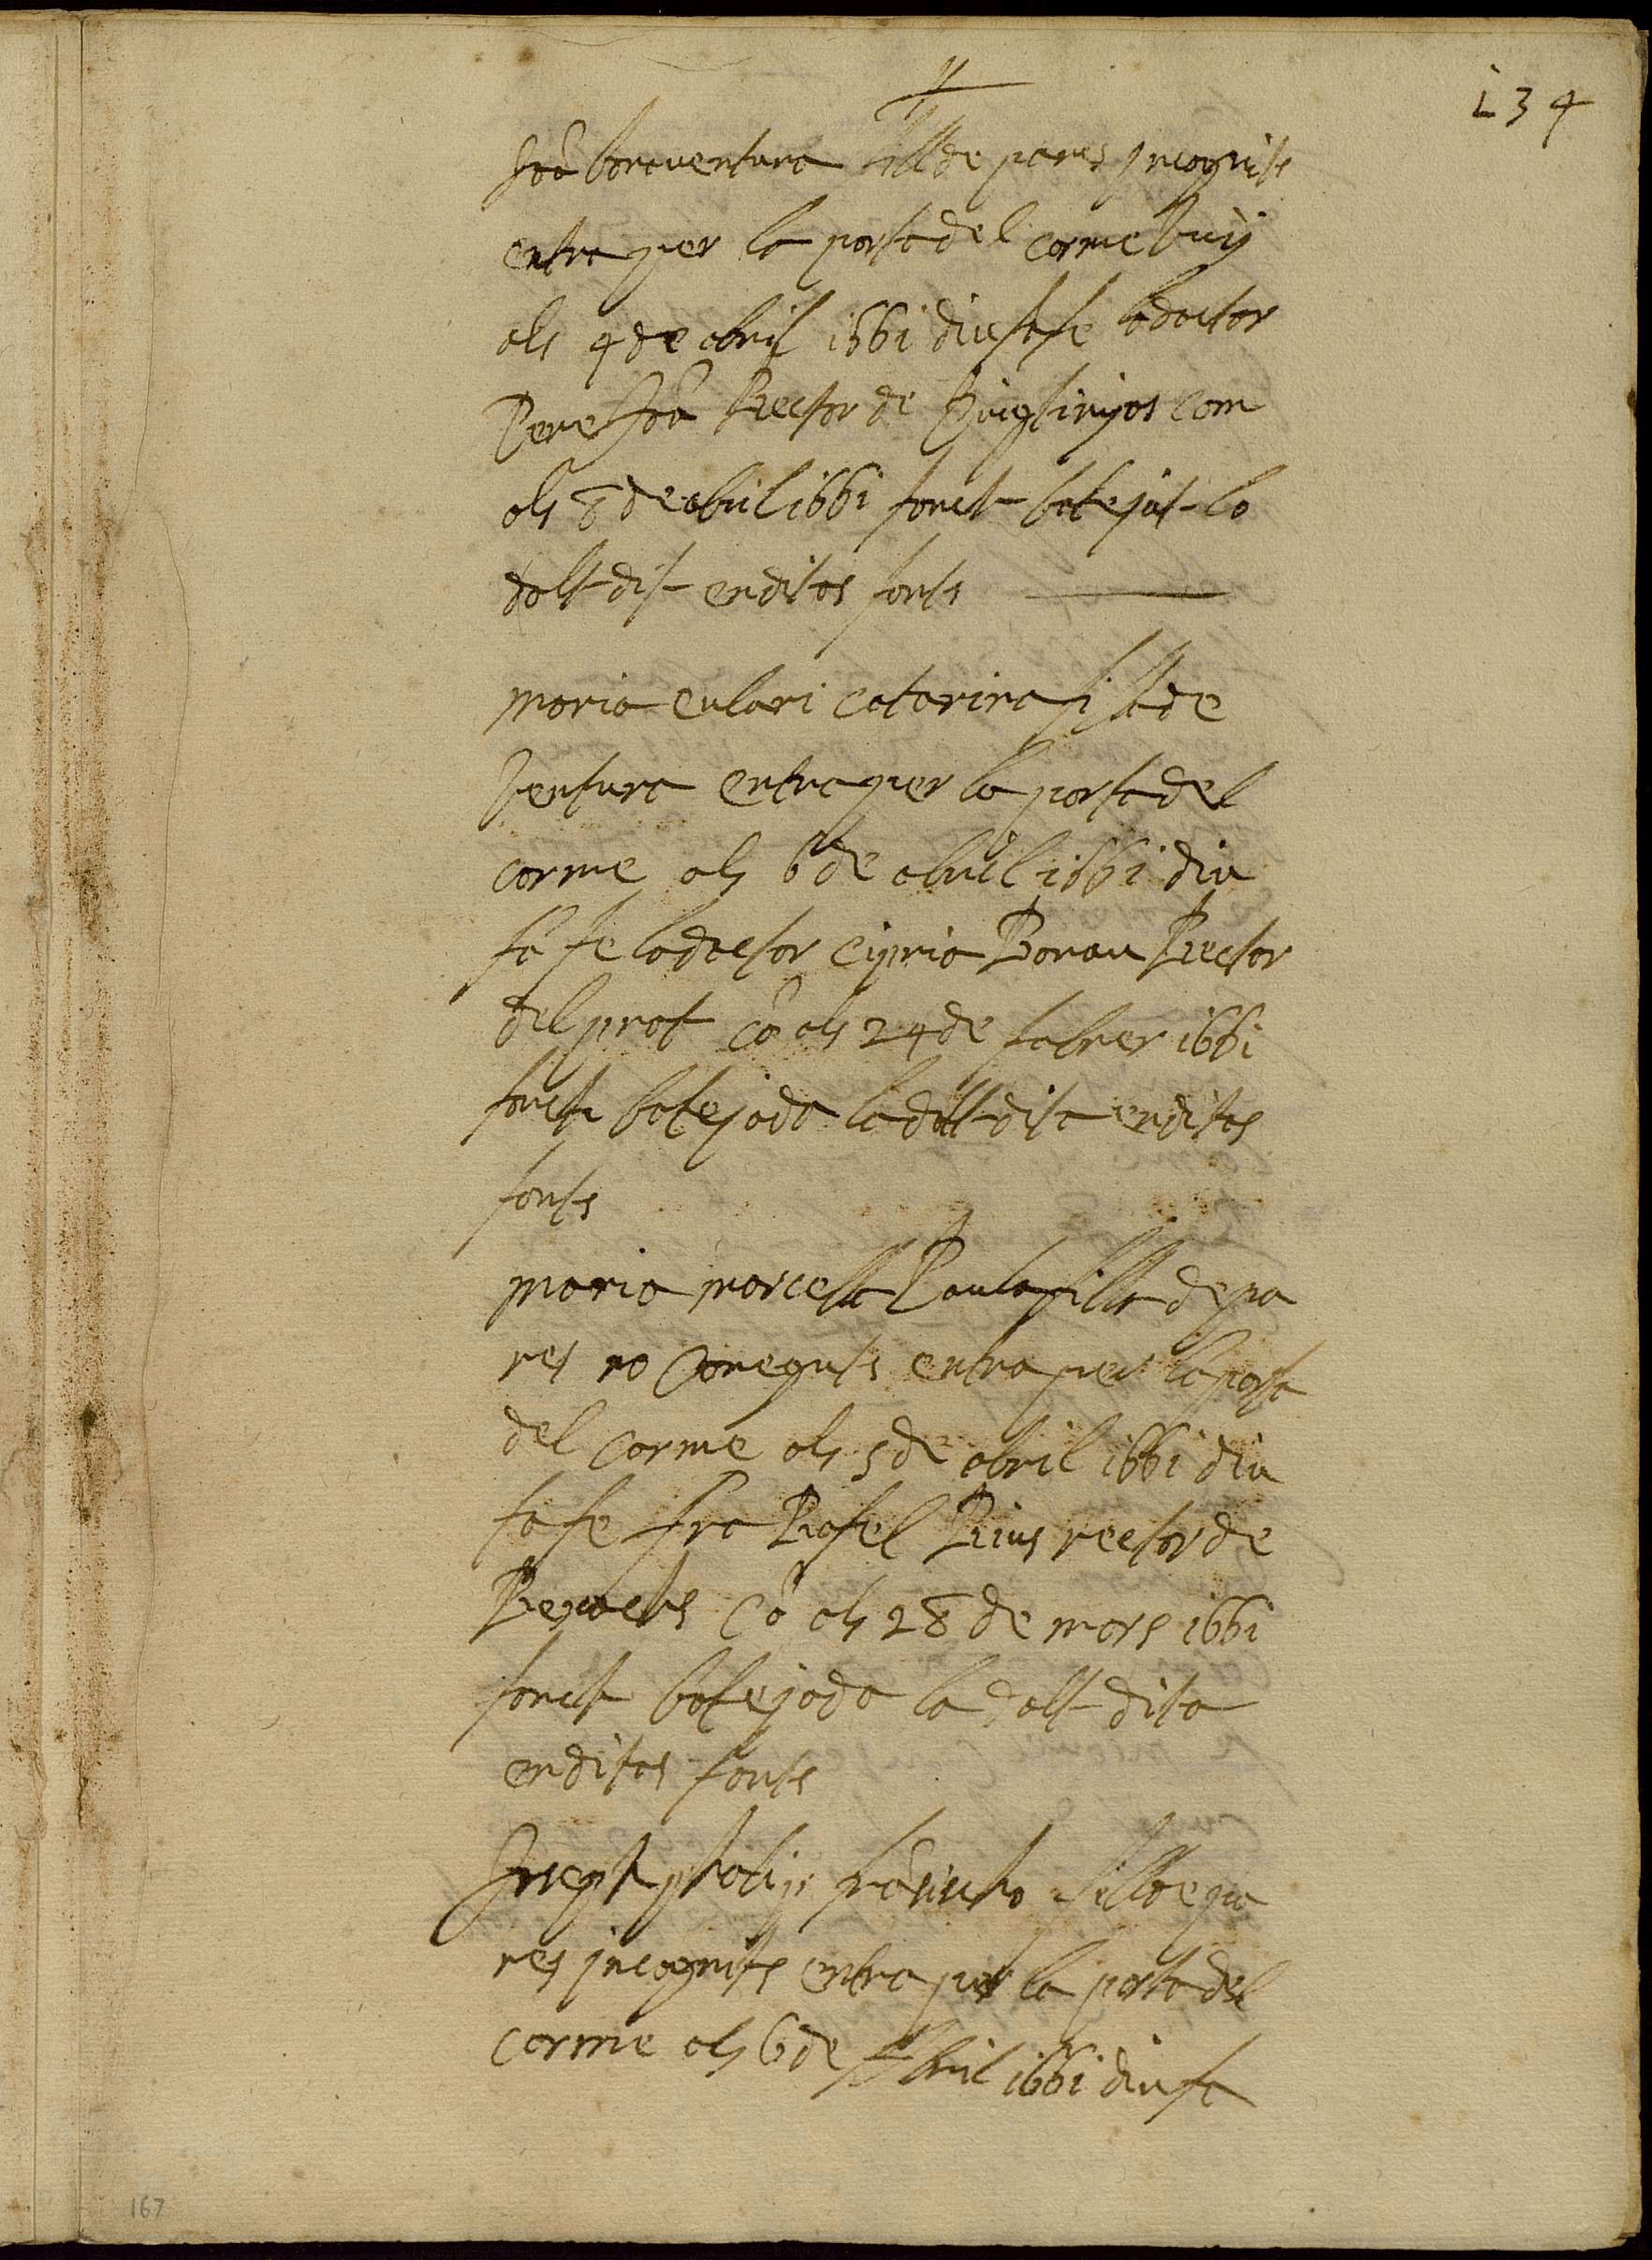 134
Joã bonaventura fill de pares jncognits
entra per la porta del carme buÿ
als 4 de abril 1661 diu fa fe lo doctor
Pere Joã Rector de Puigtinyos com
als 8 de abril 1661 fonch batejat lo
dalt dit en ditas fonts
maria eulari catarina filla de
Ventura entra per la porta del
carme als 6 de abril 1661 diu
fa fe lo doctor Cipria Borau Rector
del prat cõ als 24 de fabrer 1661
fonch batejada la dalt dita en ditas
fonts
maria marcella Paula filla de pa
res no coneguts entra per la porta
del carme als 5 de abril 1661 diu
fa fe fra Rafel Rius rector de
cõ als 28 de mars 1661
fonch batejada la dalt dita
en ditas fonts
Joseph phalip frãsischo fill de pa
res jncognits entra per la porta del
carme als 6 de Abril 1661 diu fa
167